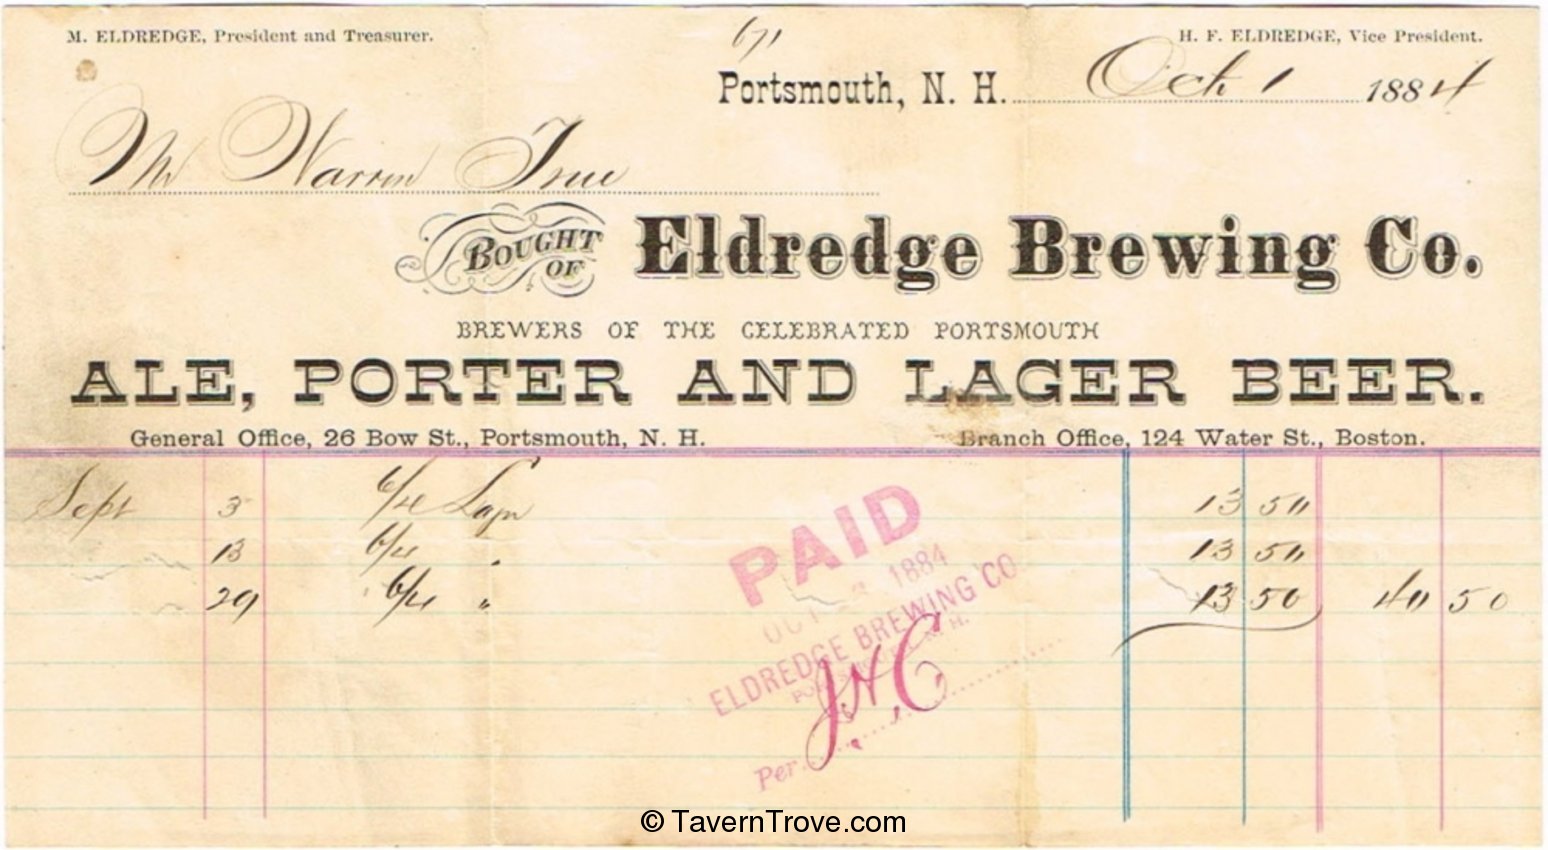 M. ELDREDGE, President and Treasurer.
671
H. F. ELDREDGE, Vice President.
Portsmouth, N. H. Oct 1 1884
Mr Warren True
BOUGHT OF Eldredge Brewing Co.
BREWERS OF THE CELEBRATED PORTSMOUTH
ALE, PORTER AND LAGER BEER.
General Office, 26 Bow St., Portsmouth, N. H.
Branch Office, 124 Water St., Boston.
Sept 3 6/4 Lager 13 50
13 6/4 " 13 50
29 6/4 " 13 50 40 50
PAID
OCT 1884
ELDREDGE BREWING CO
PORTSMOUTH, N. H.
Per J H C
© TavernTrove.com